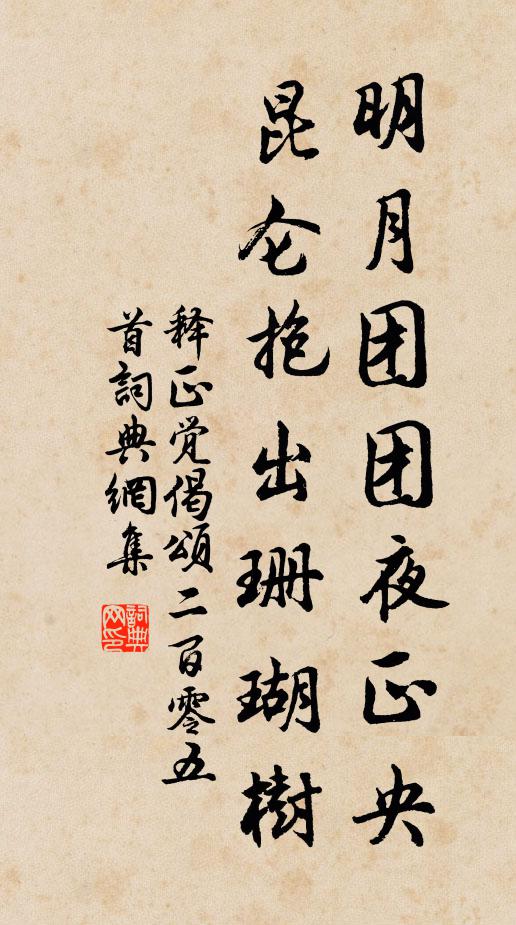 明月团团夜正央
昆仑抱出珊瑚樹
释正觉偈頌二百零五
首詞典網集
詞典网印